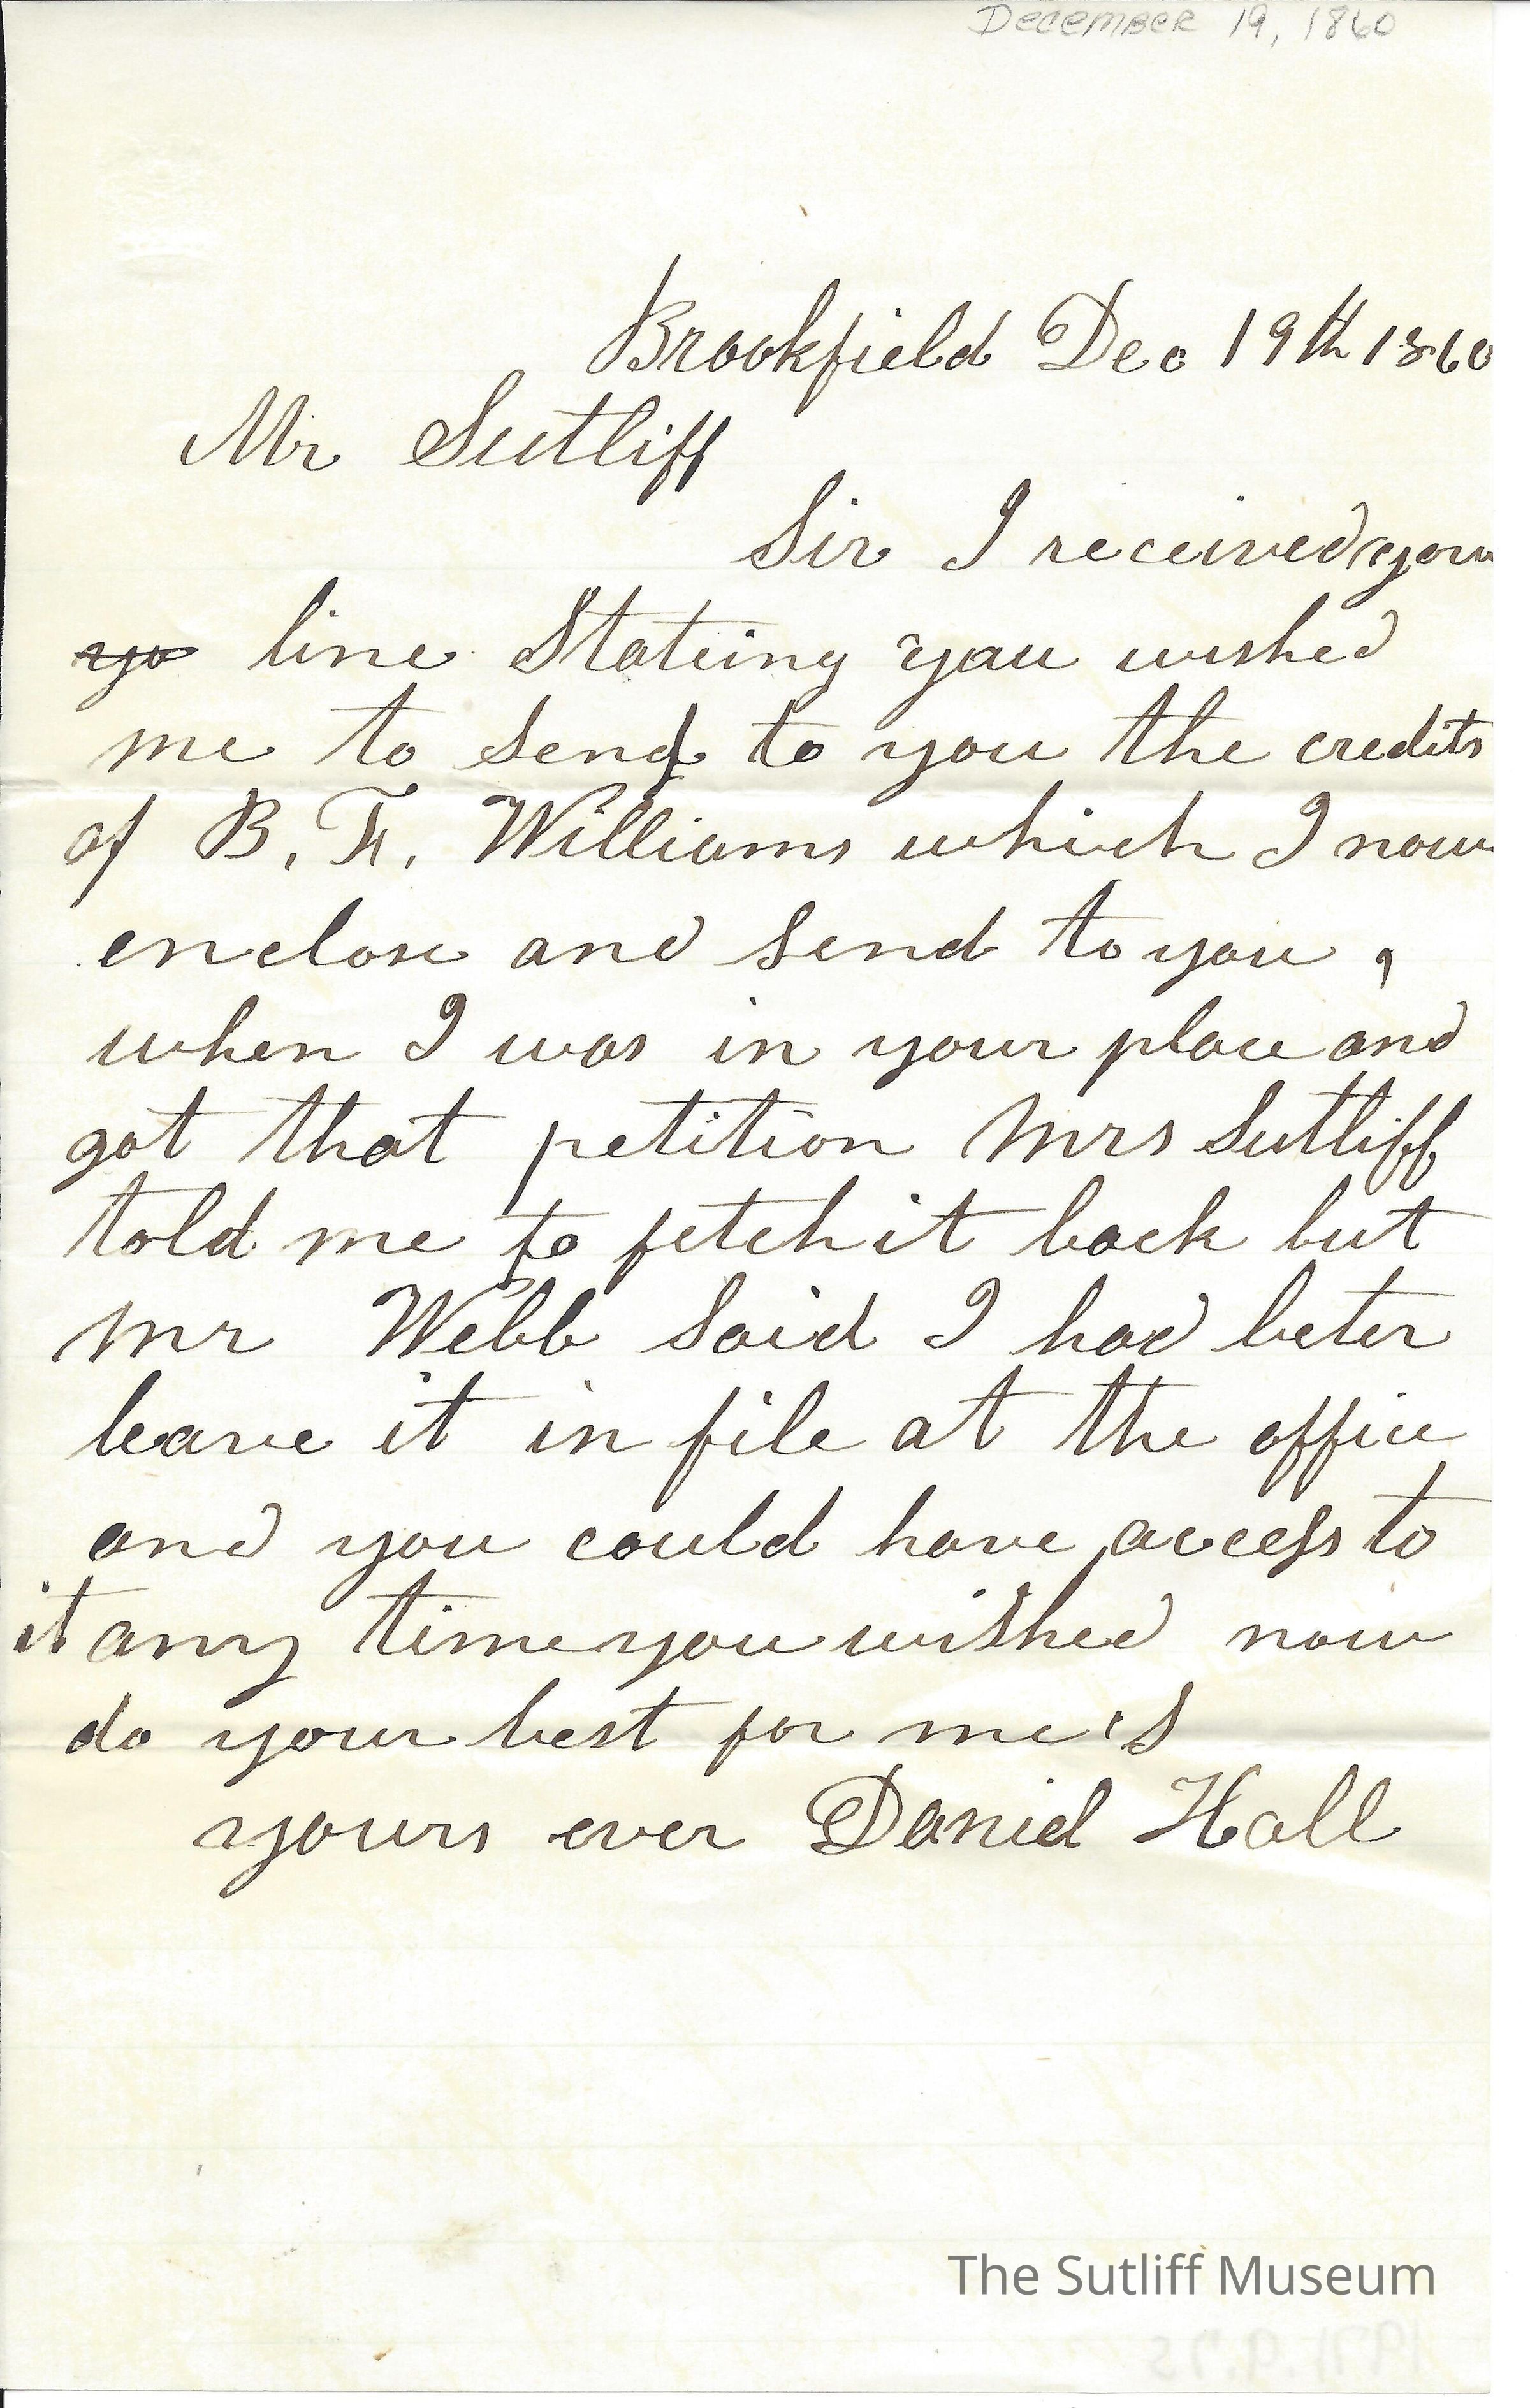 December 19, 1860
Brookfield Dec 19th 1860
Mr Sutliff
Sir I received your
yo line Stateing you wished
me to send to you the credits
of B. F. Williams which I now
enclose and send to you ,
when I was in your place and
got that petition Mrs Sutliff
told me to fetch it back but
Mr Webb said I had beter
leave it in file at the office
and you could have access to
it any time you wished now
do your best for me
yours ever Daniel Hall
The Sutliff Museum
1971.9.75